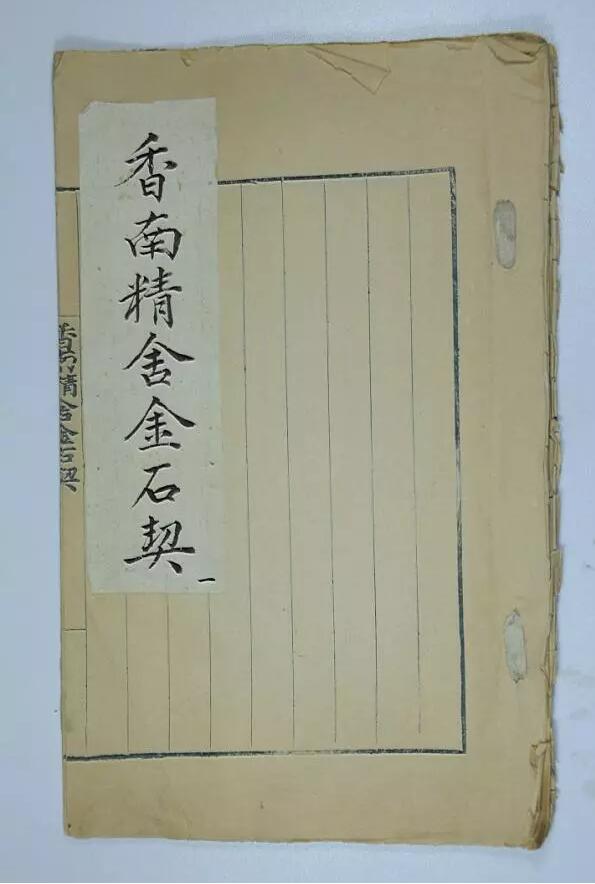 香南精舍金石契
一
香南精舍金石契